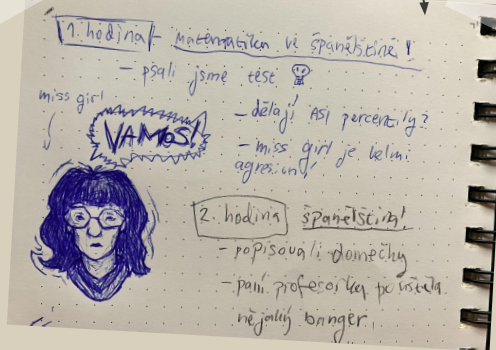 1. hodina - matematika ve španělštině!
- psali jsme test
miss girl
VAMOS!
- dělají asi percentily?
- miss girl je velmi
agresivní!
2. hodina španělština!
- popisovali domečky
- paní profesorka pouštěla
nějaký banger